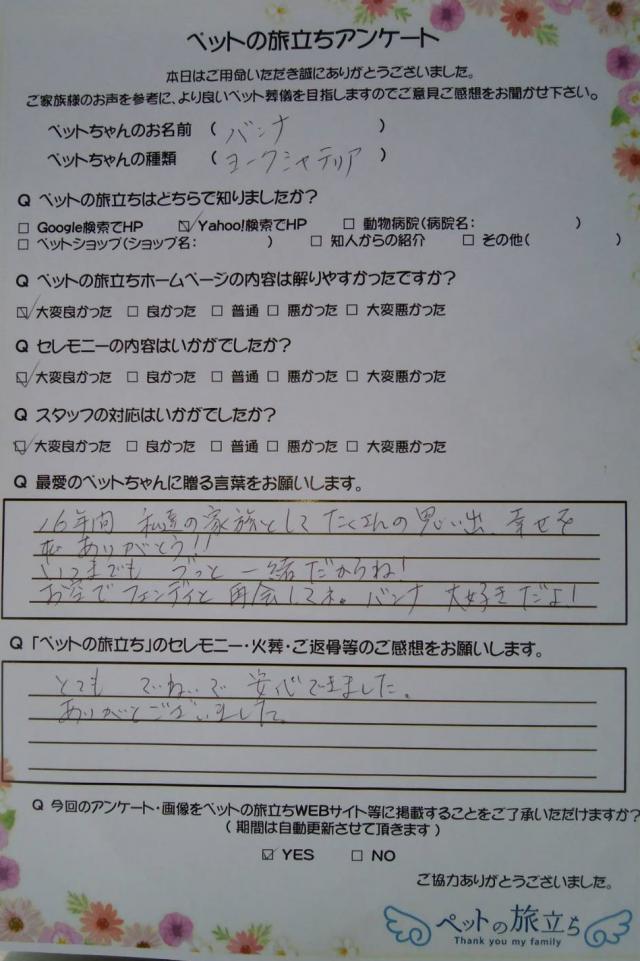 ペットの旅立ちアンケート
本日はご用命いただき誠にありがとうございました。
ご家族様のお声を参考に、より良いペット葬儀を目指しますのでご意見ご感想をお聞かせ下さい。
ペットちゃんのお名前 ( バンナ )
ペットちゃんの種類 ( ヨークシャテリア )
Q ペットの旅立ちはどちらで知りましたか?
□ Google検索でHP ☑ Yahoo!検索でHP □ 動物病院(病院名: )
□ ペットショップ(ショップ名: ) □ 知人からの紹介 □ その他( )
Q ペットの旅立ちホームページの内容は解りやすかったですか?
☑ 大変良かった □ 良かった □ 普通 □ 悪かった □ 大変悪かった
Q セレモニーの内容はいかがでしたか?
☑ 大変良かった □ 良かった □ 普通 □ 悪かった □ 大変悪かった
Q スタッフの対応はいかがでしたか?
☑ 大変良かった □ 良かった □ 普通 □ 悪かった □ 大変悪かった
Q 最愛のペットちゃんに贈る言葉をお願いします。
16年間 私達の家族としてたくさんの思い出、幸せを
ありがとう!!
いつまでも ずっと 一緒だからね!
お空でフェンディと再会してネ。バンナ 大好きだよ!
Q 「ペットの旅立ち」のセレモニー・火葬・ご返骨等のご感想をお願いします。
とても ていねいで 安心できました。
ありがとございました。
Q 今回のアンケート・画像をペットの旅立ちWEBサイト等に掲載することをご了承いただけますか?
( 期間は自動更新させて頂きます )
☑ YES □ NO
ご協力ありがとうございました。
ペットの旅立ち
Thank you my family